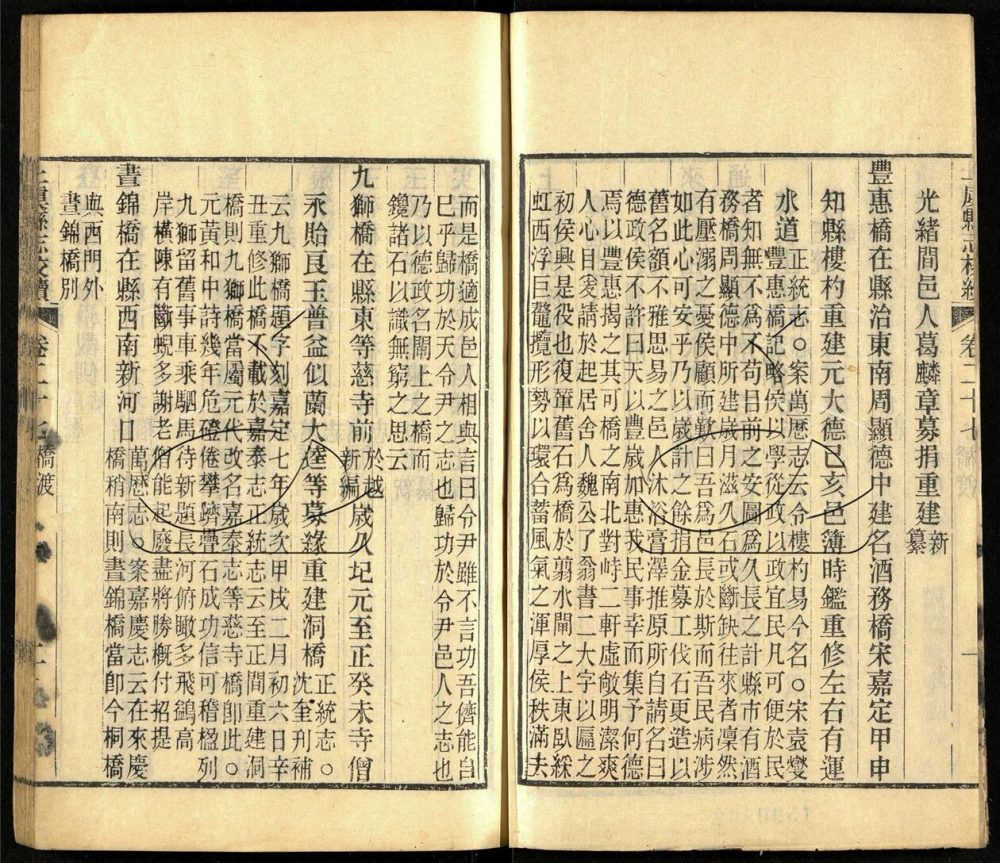 上虞縣志校續 卷二十七 一
光緒間邑人葛麟章募捐重建新纂
豐惠橋在縣治東南周顯德中建名酒務橋宋嘉定甲申
知縣樓杓重建元大德己亥邑簿時鑑重修左右有運
水道正統志○案萬厯志云令樓杓易今名○宋袁燮
豐惠橋記略侯以學從政以政宜民凡可便於民
者知無不爲不苟目前之安圖爲久長之計縣市有酒
務橋周顯德中所建歲月滋久石或斷缺往來者凜然
有壓溺之憂侯顧而歎曰吾爲邑長於斯而吾民病涉
如此心可安乎乃以歲計之餘捐金募工伐石更造以
舊名額不雅思易之邑人沐浴膏澤推原所自請名曰
德政侯不許曰天以豐歲加惠我民事幸而集予何德
焉以豐惠揭之其可橋之南北對峙二軒虛敞明潔爽
人心目爰請於起居舍人魏公了翁書二大字以匾之
初侯興是役也復葺舊石爲橋於翦水閘之上東臥綵
虹西浮巨鼇攬形勢以環合蓄風氣之渾厚侯秩滿去
而是橋適成邑人相與言曰令尹雖不言功吾儕能自
已乎歸功於天令尹之志也歸功於令尹邑人之志也
乃以德政名閘上之橋而
鑱諸石以識無窮之思云
九獅橋在縣東等慈寺前於越新編歲久圮元至正癸未寺僧
永貽良玉普益似蘭大達等募緣重建洞橋正統志○
沈奎刋補
云九獅橋題字刻嘉定七年歲次甲戌二月初六日辛
丑重修此橋不載於嘉泰志正統志云至正間重建洞
橋則九獅橋當屬元代改名嘉泰志等慈寺橋卽此○
元黃和中詩幾年危磴倦攀躋疊石成功信可稽楹列
九獅留舊事車乘駟馬待新題長河俯瞰多飛鷁高
岸橫陳有斷蜺多謝老僧能起廢盡將勝槪付招提
晝錦橋在縣西南新河口萬厯志○案嘉慶志云在來慶
橋稍南則晝錦橋當卽今桐橋
與西門外
晝錦橋別
上虞縣志校續 卷二十七 橋渡